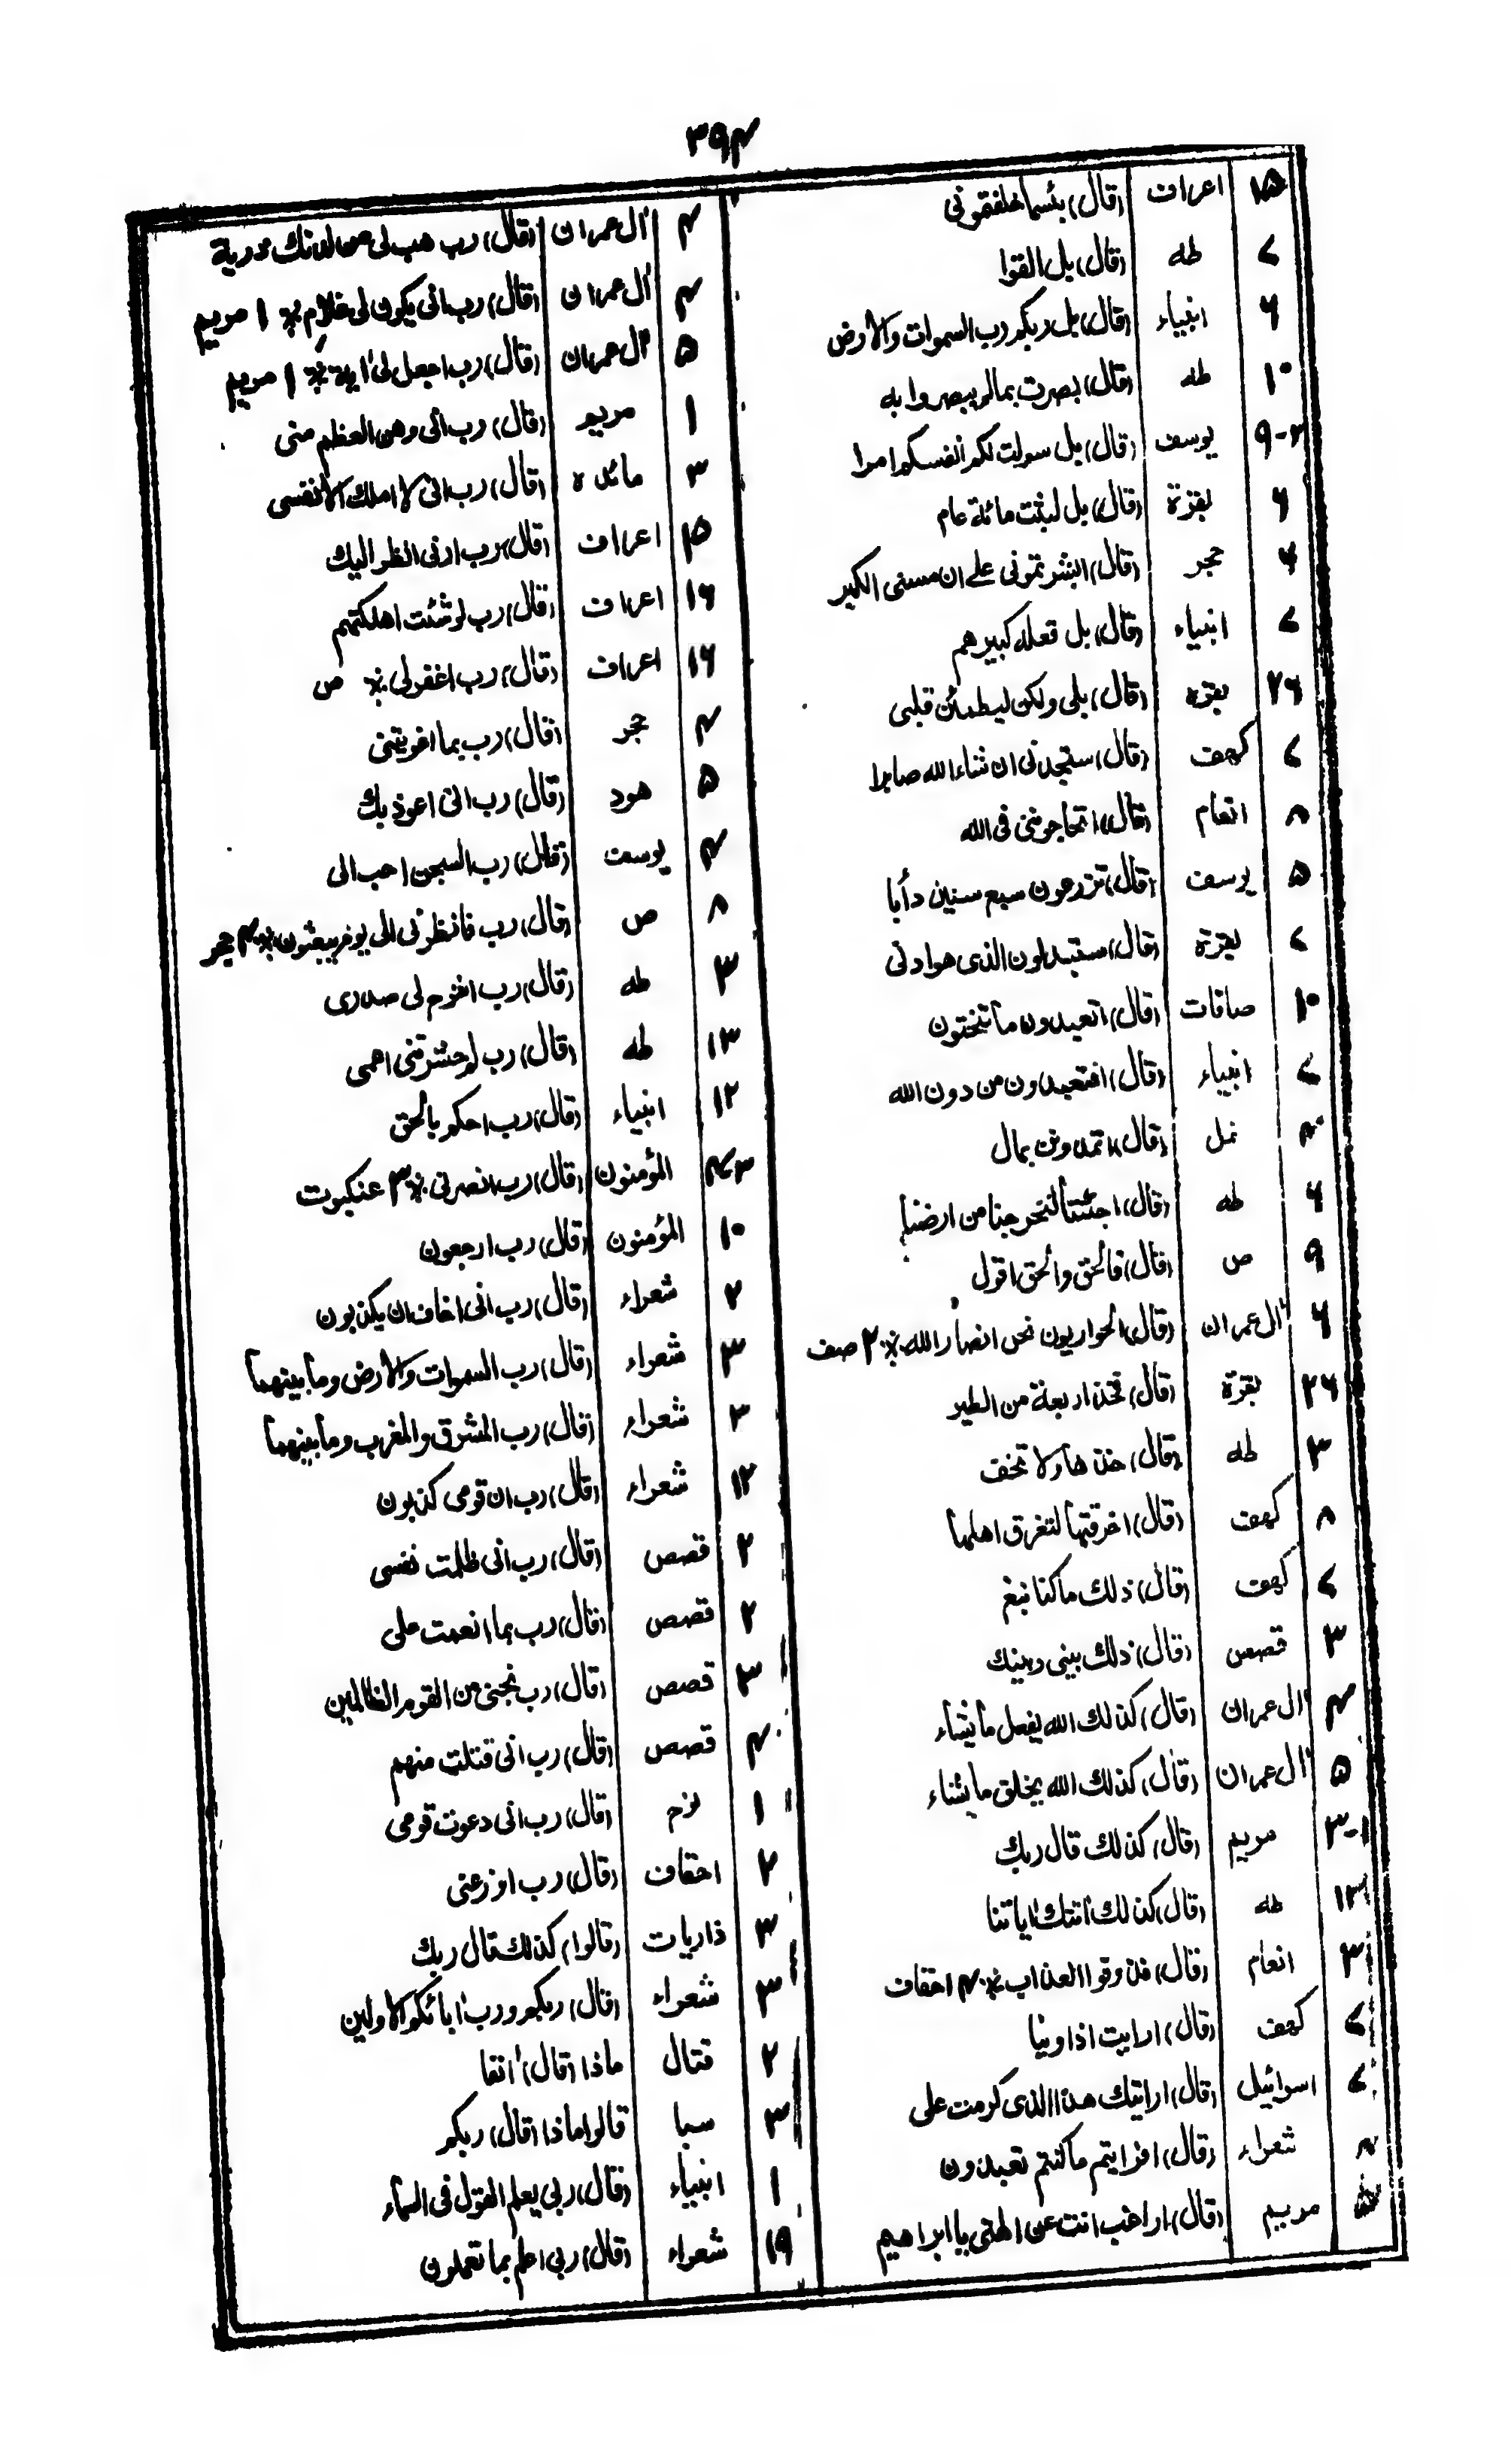 ۳۹۴
۱۵ اعراف (قال) بئسما خلفتمونی
۷ طه (قال) بل القوا
۶ انبیاء (قال) بل ربکم رب السموات والارض
۱۰ طه (قال) بصرت بمالم یبصروا به
۲-۹ یوسف (قال) بل سولت لکم انفسکم امرا
۶ بقرة (قال) بل لبثت مائة عام
۴ حجر (قال) ابشرتمونی علی ان مسنی الکبر
۷ انبیاء (قال) بل فعله کبیرهم
۲۶ بقره (قال) بلی ولکن لیطمئن قلبی
۷ کهف (قال) ستجدنی ان شاء الله صابرا
۸ انعام (قال) اتحاجونی فی الله
۵ یوسف (قال) تزرعون سبع سنین دأبا
۷ بقرة (قال) ستبدلون الذی هوادنی
۱۰ صافات (قال) اتعبدون ما تنحتون
۷ انبیاء (قال) افتعبدون من دون الله
۴ نمل (قال) اتمدونن بمال
۶ طه (قال) اجئتنا لتخرجنا من ارضنا
۹ ص (قال) فالحق والحق اقول
۶ اٰل عمران (قال) الحواریون نحن انصار الله ※ ۲ صف
۲۶ بقرة (قال) فخذ اربعة من الطیر
۳ طه (قال) خذها ولا تخف
۸ کهف (قال) اخرقتها لتغرق اهلها
۷ کهف (قال) ذلك ما کنا نبغ
۳ قصص (قال) ذلك بینی وبینك
۴ اٰل عمران (قال) کذلك الله یفعل ما یشاء
۵ اٰل عمران (قال) کذلك الله یخلق ما یشاء
۱-۳ مریم (قال) کذلك قال ربك
۱۳ طه (قال) کذلك اٰتتك اٰیاتنا
۳ انعام (قال) فذوقوا العذاب ※ ۴ احقاف
۷ کهف (قال) ارایت اذاوینا
۷ اسرائیل (قال) ارایتك هذا الذی کرمت علی
۴ شعراء (قال) افرایتم ما کنتم تعبدون
مریم (قال) اراغب انت عن اٰلهتی یا ابراهیم
۴ اٰل عمران (قال) رب هب لی من لدنك ذریة
۴ اٰل عمران (قال) رب انی یکون لی غلام ※ ۱ مریم
۵ اٰل عمران (قال) رب اجعل لی اٰیة ※ ۱ مریم
۱ مریم (قال) رب انی وهن العظم منی
۳ مائدة (قال) رب انی لا املك الا نفسی
۱۵ اعراف (قال) رب ارنی انظر الیك
۱۶ اعراف (قال) رب لوشئت اهلکتهم
۱۶ اعراف (قال) رب اغفرلی ※ ص
۴ حجر (قال) رب بما اغویتنی
۵ هود (قال) رب انی اعوذ بك
۴ یوسف (قال) رب السجن احب الی
۸ ص (قال) رب فانظرنی الی یوم یبعثون ※ ۴ حجر
۳ طه (قال) رب اشرح لی صدری
۱۳ طه (قال) رب لم حشرتنی اعمی
۱۲ انبیاء (قال) رب احکم بالحق
المؤمنون (قال) رب انصرنی ※ ۳ عنکبوت
۱۰ المؤمنون (قال) رب ارجعون
۲ شعراء (قال) رب انی اخاف ان یکذبون
۳ شعراء (قال) رب السموات والارض وما بینهما
۳ شعراء (قال) رب المشرق والمغرب وما بینهما
۱۲ شعراء (قال) رب ان قومی کذبون
۲ قصص (قال) رب انی ظلمت نفسی
۲ قصص (قال) رب بما انعمت علی
۳ قصص (قال) رب نجنی من القوم الظالمین
۴ قصص (قال) رب انی قتلت منهم
۱ نوح (قال) رب انی دعوت قومی
۲ احقاف (قال) رب اوزعنی
۳ ذاریات (قالوا) کذلك قال ربك
۳ شعراء (قال) ربکم ورب اٰبائکم الاولین
۲ قتال ماذا (قال) اٰنفا
۳ سبا قالوا ماذا (قال) ربکم
۱ انبیاء (قال) ربی یعلم القول فی السماء
۱۹ شعراء (قال) ربی اعلم بما تعملون